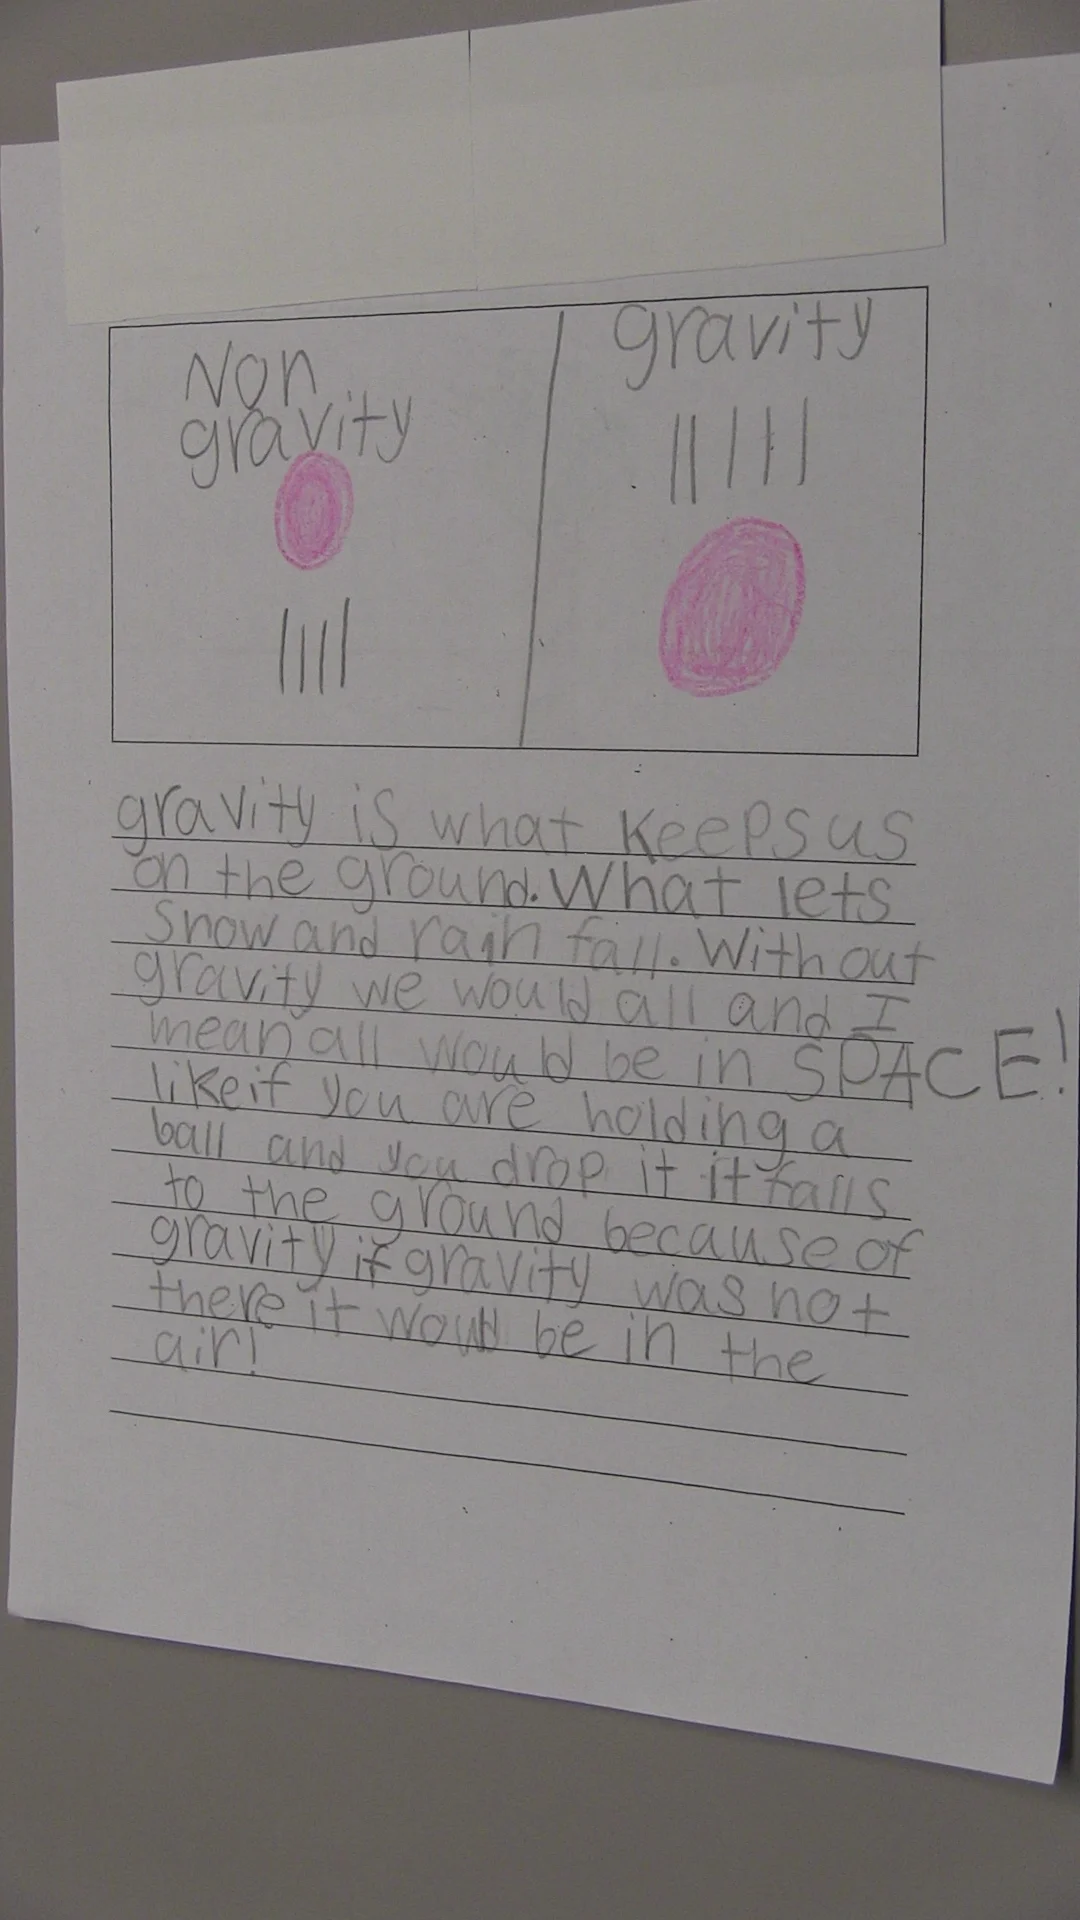 Non
gravity
gravity
gravity is what keeps us
on the ground. What lets
snow and rain fall. With out
gravity we would all and I
mean all would be in SPACE!
like if you are holding a
ball and you drop it it falls
to the ground because of
gravity if gravity was not
there it would be in the
air!